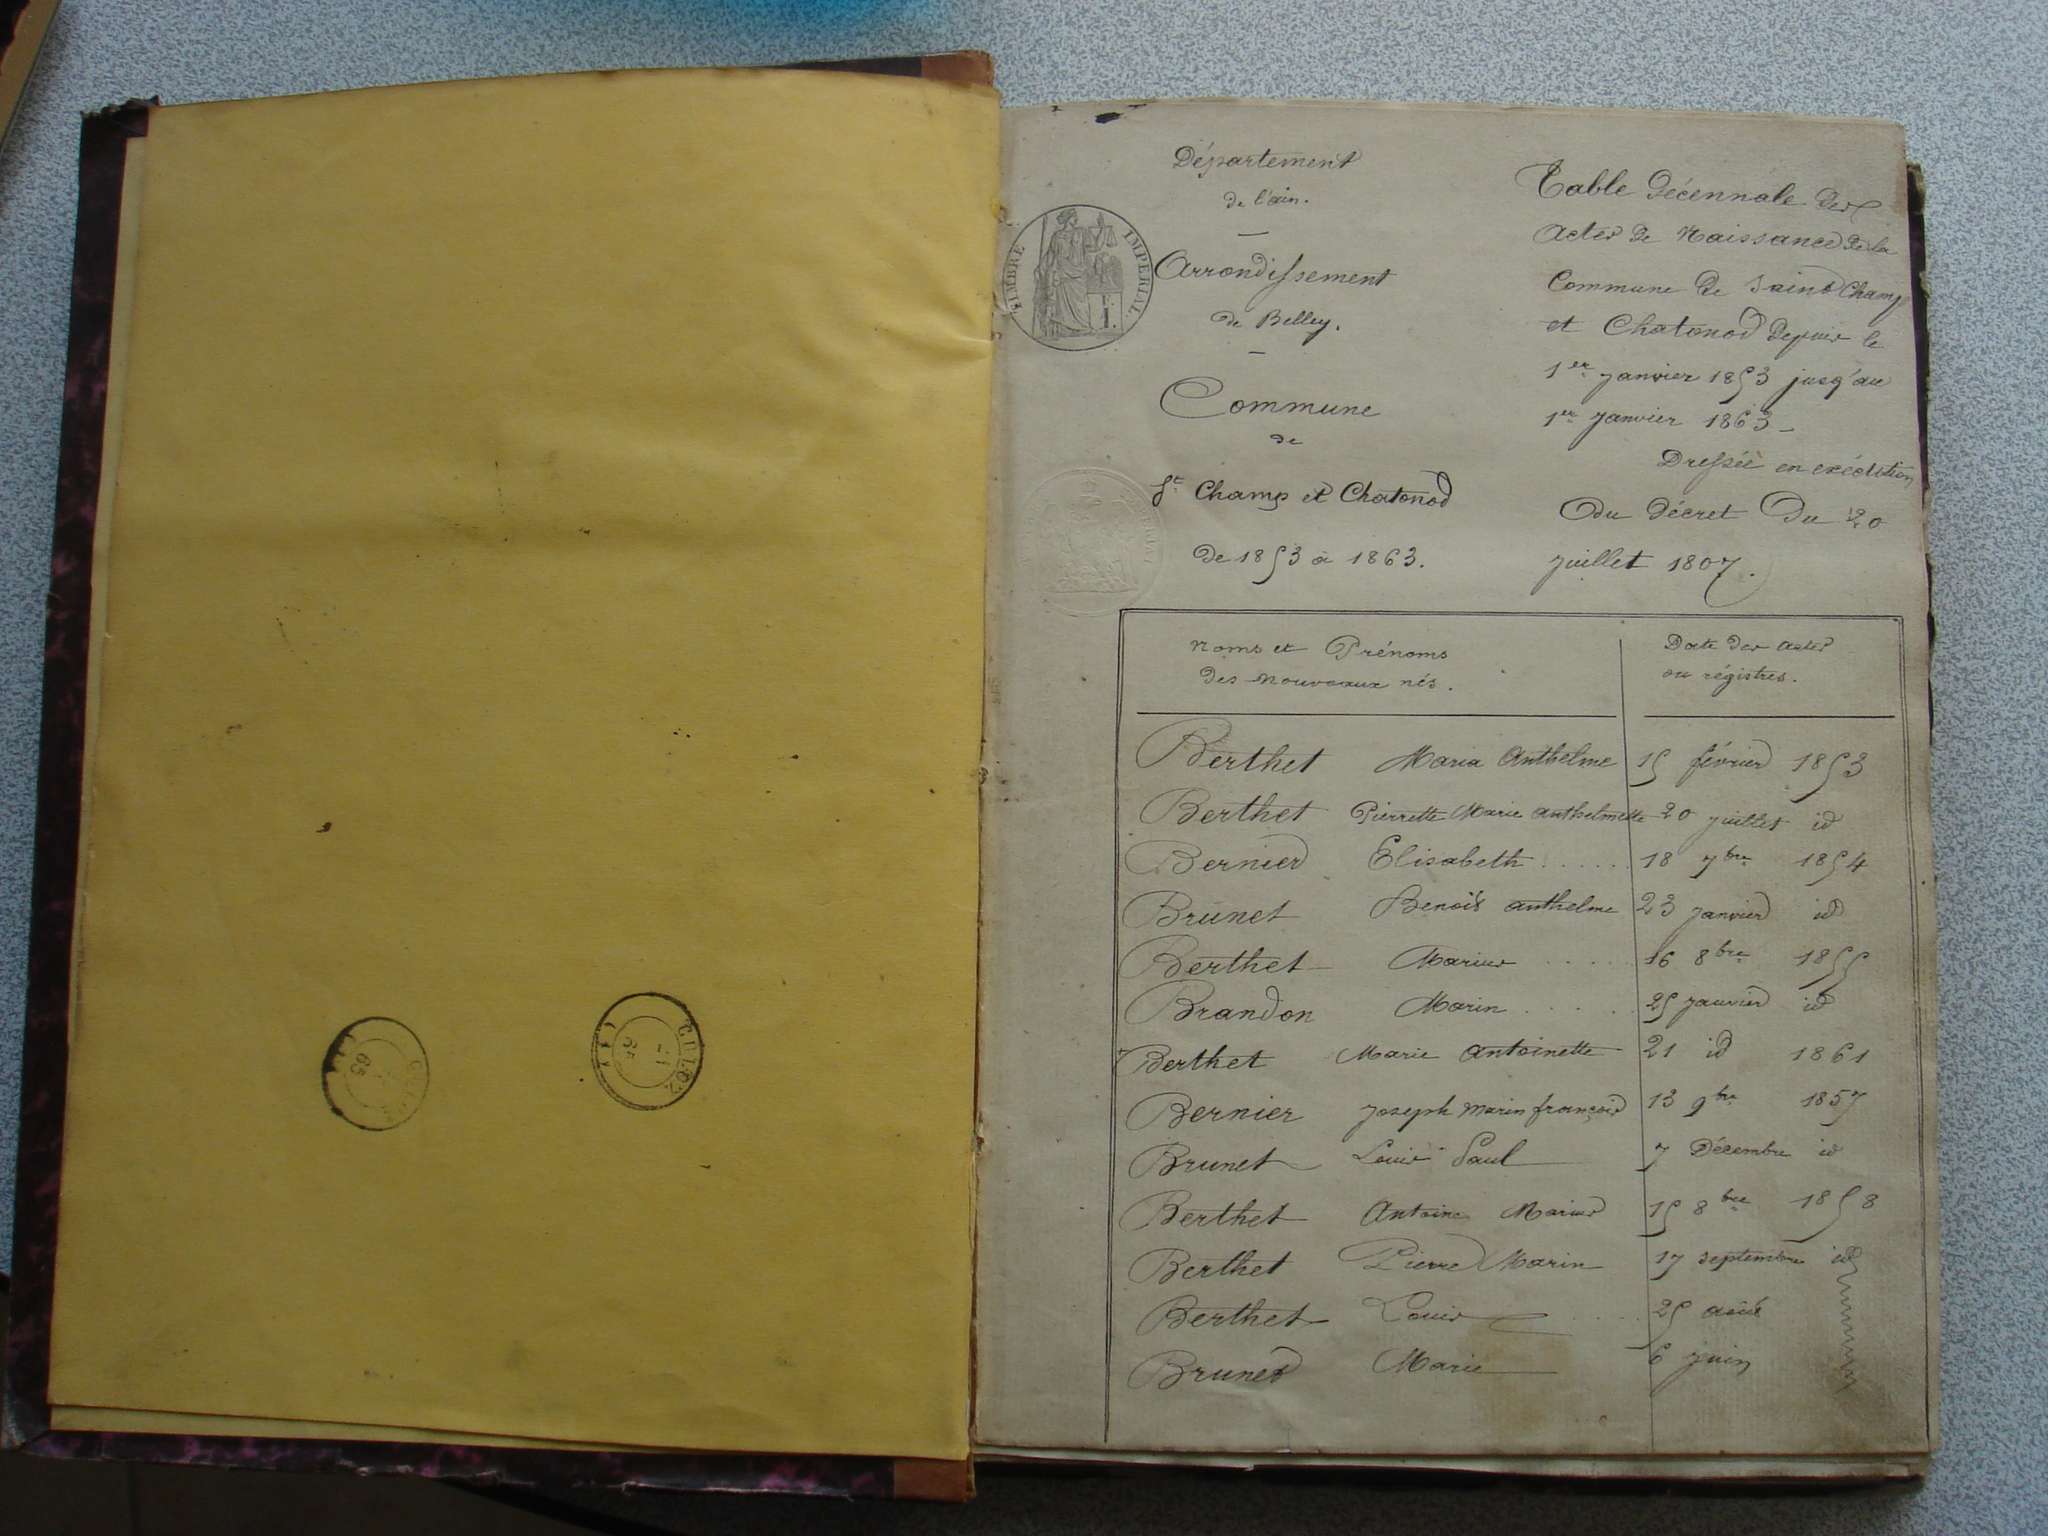 CULOZ
65
CULOZ
65
Département
de l'ain.
TIMBRE IMPERIAL
Arrondissement
de Belley.
Commune
de
St Champ et Chatonod
de 1853 à 1863.
Table Décennale des
Actes de Naissance de la
Commune de Saint Champ
et Chatonod depuis le
1er janvier 1853 jusq'au
1er janvier 1863
Dressée en exécution
du décret du 20
juillet 1807.
Noms et Prénoms
des nouveaux nés.
Date des actes
ou régistres.
Berthet Maria Anthelme 15 février 1853
Berthet Pierrette Marie Anthelmette 20 juillet id
Bernier Elisabeth ..... 18 7bre 1854
Brunet Benoit anthelme 23 janvier id
Berthet Marius ..... 16 8bre 1855
Brandon Marin ..... 25 janvier id
Berthet Marie Antoinette 21 id 1861
Bernier Joseph Marin françois 13 9bre 1857
Brunet Louis Paul 7 Décembre id
Berthet Antoine Marius 15 8bre 1858
Berthet Pierre Marin 17 septembre id
Berthet Louis .... 25 août
Brunet Marie 6 juin